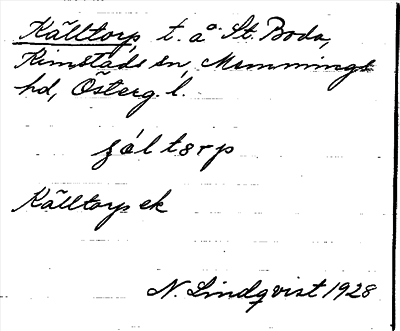 Källtorp, t. å St. Boda,
Kimstads sn, Memmings
hd, Österg. l.
fáltorp
Källtorps ek
N. Lindqvist 1928